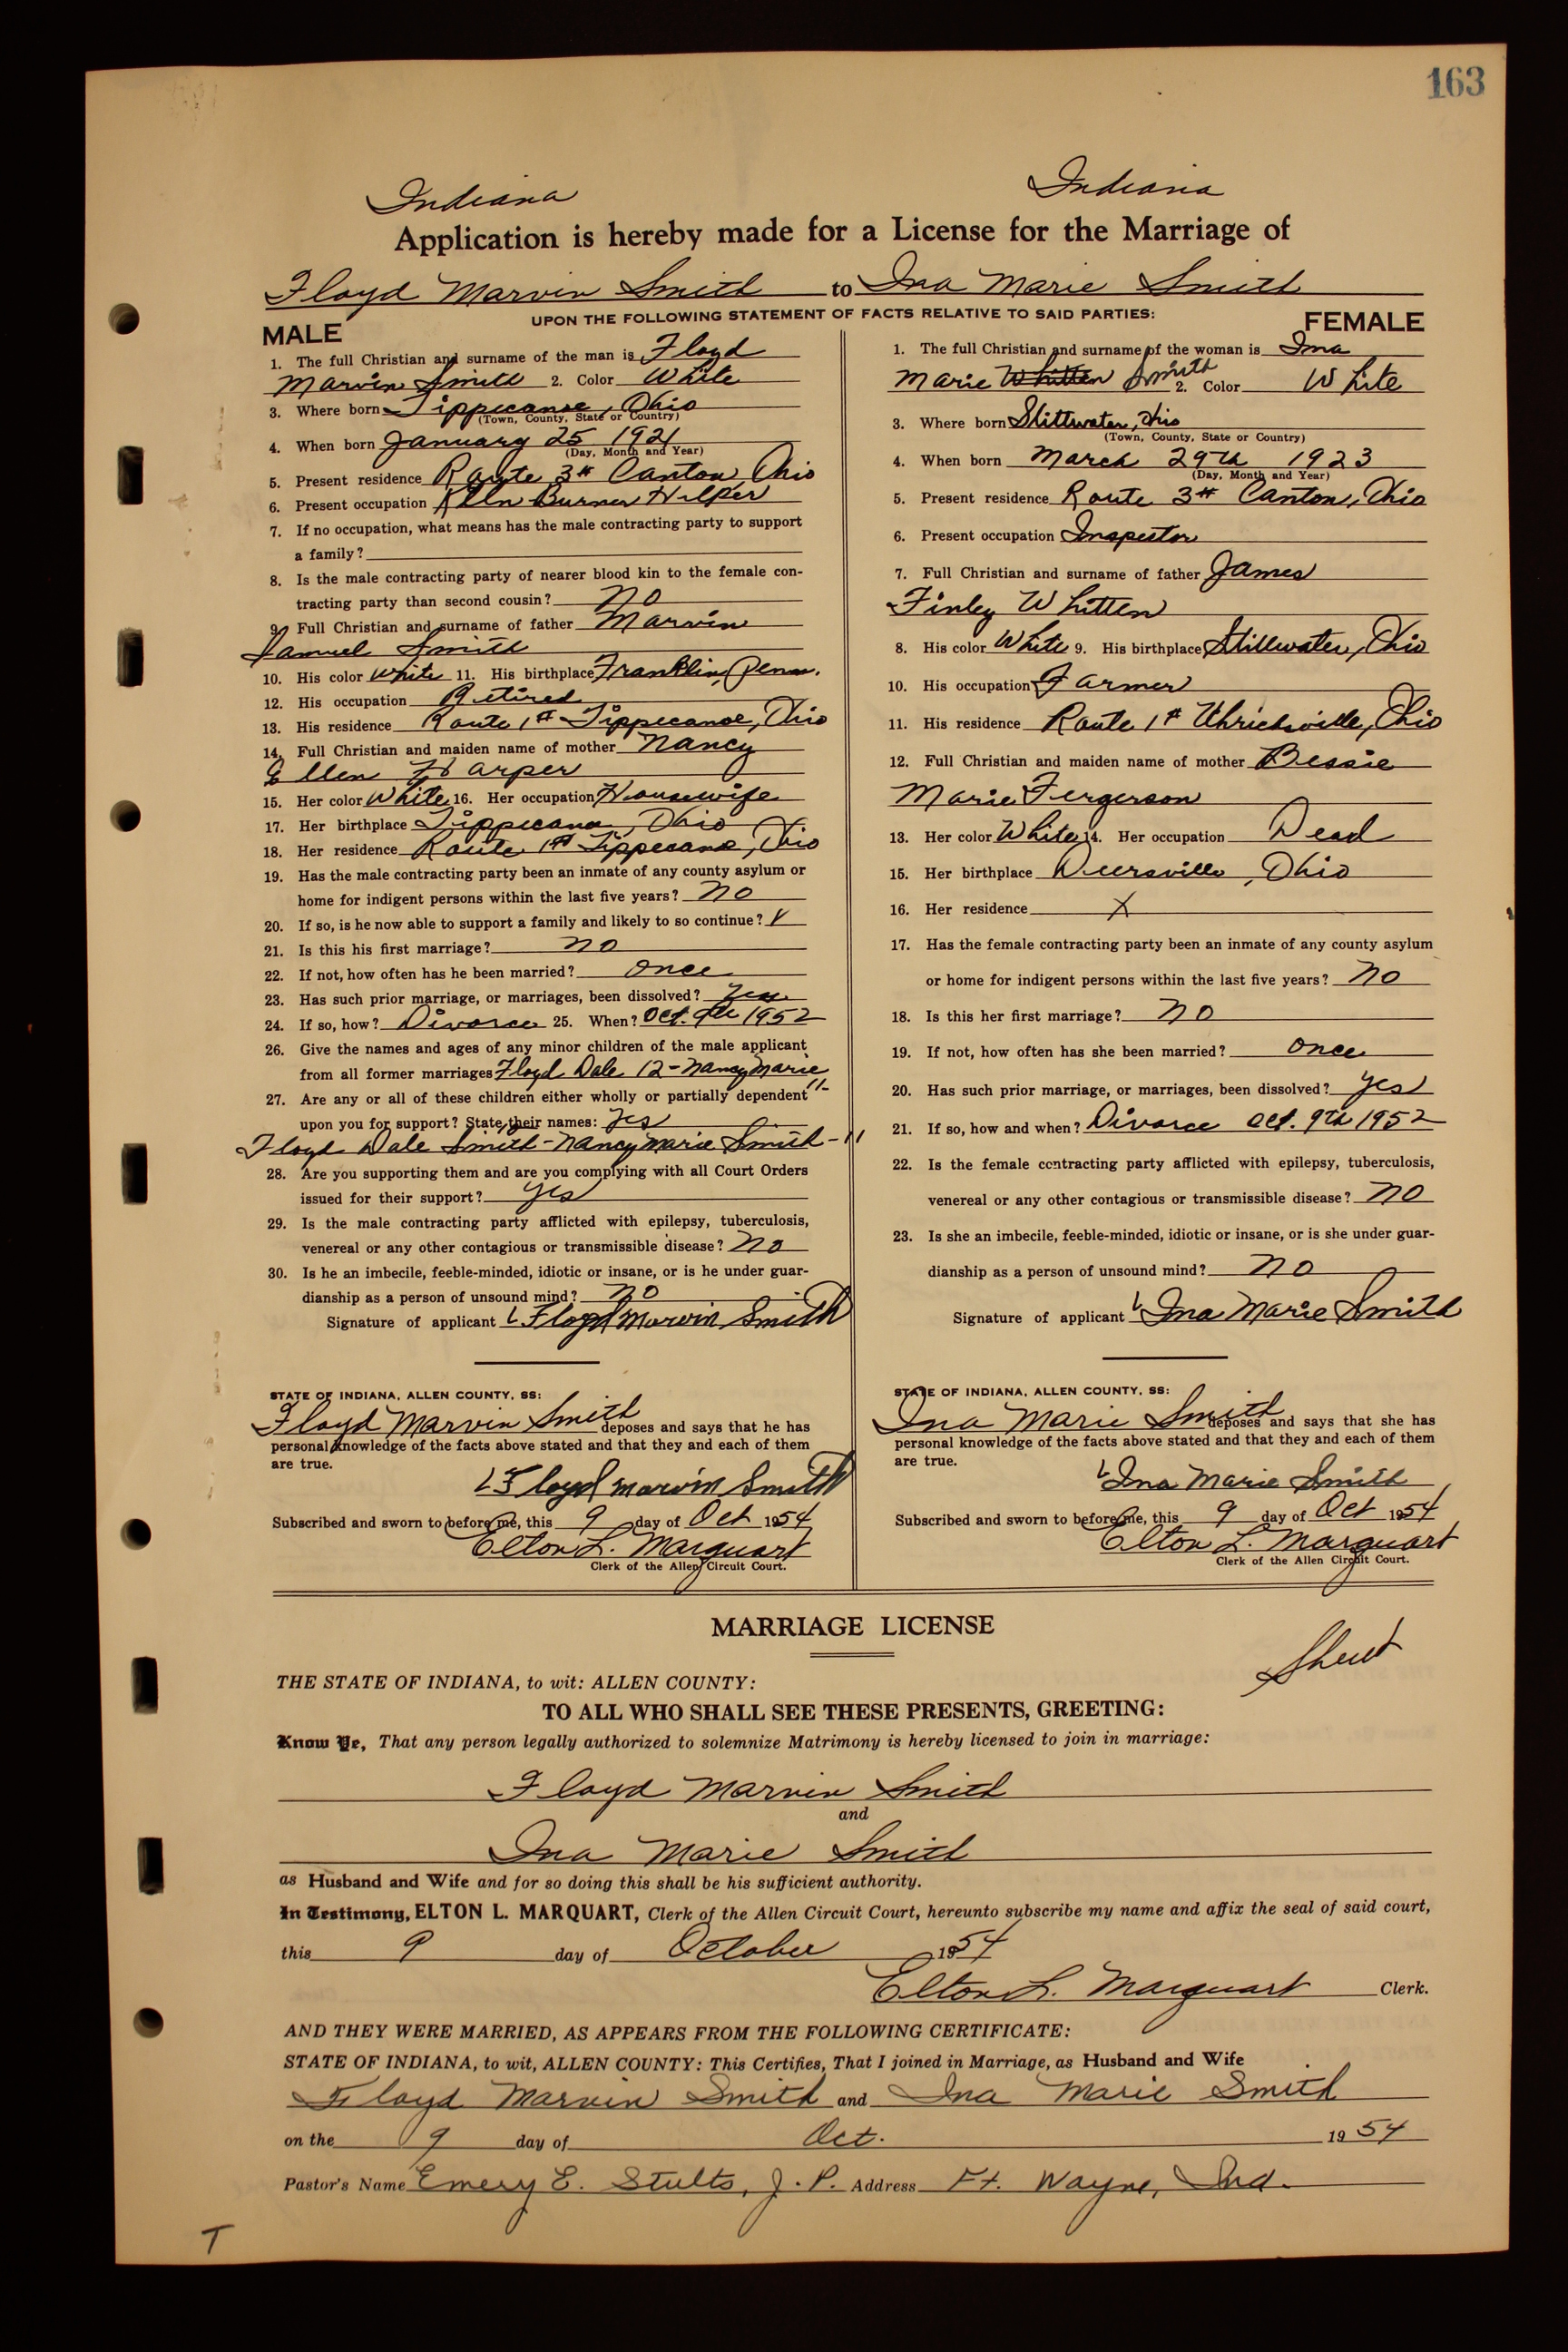 163
Indiana Indiana
Application is hereby made for a License for the Marriage of
Floyd Marvin Smith to Ina Marie Smith
UPON THE FOLLOWING STATEMENT OF FACTS RELATIVE TO SAID PARTIES:
MALE
1. The full Christian and surname of the man is Floyd
Marvin Smith 2. Color White
3. Where born Tippecanoe, Ohio
(Town, County, State or Country)
4. When born January 25 1921
(Day, Month and Year)
5. Present residence Route 3# Canton, Ohio
6. Present occupation Kiln Burner Helper
7. If no occupation, what means has the male contracting party to support
a family?
8. Is the male contracting party of nearer blood kin to the female con-
tracting party than second cousin? no
9. Full Christian and surname of father Marvin
Samuel Smith
10. His color White 11. His birthplace Franklin, Penn.
12. His occupation Retired
13. His residence Route 1# Tippecanoe, Ohio
14. Full Christian and maiden name of mother Nancy
Ellen Harper
15. Her color White 16. Her occupation Housewife
17. Her birthplace Tippecanoe, Ohio
18. Her residence Route 1# Tippecanoe, Ohio
19. Has the male contracting party been an inmate of any county asylum or
home for indigent persons within the last five years? no
20. If so, is he now able to support a family and likely to so continue?
21. Is this his first marriage? no
22. If not, how often has he been married? once
23. Has such prior marriage, or marriages, been dissolved? yes
24. If so, how? Divorce 25. When? Oct. 9th 1952
26. Give the names and ages of any minor children of the male applicant
from all former marriages Floyd Dale 12 - Nancy Marie
11-
27. Are any or all of these children either wholly or partially dependent
upon you for support? State their names: Yes
Floyd Dale Smith - Nancy Marie Smith - 11
28. Are you supporting them and are you complying with all Court Orders
issued for their support? yes
29. Is the male contracting party afflicted with epilepsy, tuberculosis,
venereal or any other contagious or transmissible disease? no
30. Is he an imbecile, feeble-minded, idiotic or insane, or is he under guar-
dianship as a person of unsound mind? no
Signature of applicant Floyd Marvin Smith
STATE OF INDIANA, ALLEN COUNTY, SS:
Floyd Marvin Smith deposes and says that he has
personal knowledge of the facts above stated and that they and each of them
are true.
Floyd Marvin Smith
Subscribed and sworn to before me, this 9 day of Oct 1954
Elton L. Marquart
Clerk of the Allen Circuit Court.
FEMALE
1. The full Christian and surname of the woman is Ina
Marie Whitten Smith 2. Color White
3. Where born Stillwater, Ohio
(Town, County, State or Country)
4. When born March 29th 1923
(Day, Month and Year)
5. Present residence Route 3# Canton, Ohio
6. Present occupation Inspector
7. Full Christian and surname of father James
Finley Whitten
8. His color White 9. His birthplace Stillwater, Ohio
10. His occupation Farmer
11. His residence Route 1# Uhrichsville, Ohio
12. Full Christian and maiden name of mother Bessie
Marie Fergerson
13. Her color White 14. Her occupation Dead
15. Her birthplace Deersville, Ohio
16. Her residence X
17. Has the female contracting party been an inmate of any county asylum
or home for indigent persons within the last five years? no
18. Is this her first marriage? no
19. If not, how often has she been married? once
20. Has such prior marriage, or marriages, been dissolved? yes
21. If so, how and when? Divorce Oct. 9th 1952
22. Is the female contracting party afflicted with epilepsy, tuberculosis,
venereal or any other contagious or transmissible disease? no
23. Is she an imbecile, feeble-minded, idiotic or insane, or is she under guar-
dianship as a person of unsound mind? no
Signature of applicant Ina Marie Smith
STATE OF INDIANA, ALLEN COUNTY, SS:
Ina Marie Smith deposes and says that she has
personal knowledge of the facts above stated and that they and each of them
are true.
Ina Marie Smith
Subscribed and sworn to before me, this 9 day of Oct 1954
Elton L. Marquart
Clerk of the Allen Circuit Court.
MARRIAGE LICENSE
THE STATE OF INDIANA, to wit: ALLEN COUNTY:
TO ALL WHO SHALL SEE THESE PRESENTS, GREETING:
Know Ye, That any person legally authorized to solemnize Matrimony is hereby licensed to join in marriage:
Floyd Marvin Smith
and
Ina Marie Smith
as Husband and Wife and for so doing this shall be his sufficient authority.
In Testimony, ELTON L. MARQUART, Clerk of the Allen Circuit Court, hereunto subscribe my name and affix the seal of said court,
this 9 day of October 1954
Elton L. Marquart Clerk.
AND THEY WERE MARRIED, AS APPEARS FROM THE FOLLOWING CERTIFICATE:
STATE OF INDIANA, to wit, ALLEN COUNTY: This Certifies, That I joined in Marriage, as Husband and Wife
Floyd Marvin Smith and Ina Marie Smith
on the 9 day of Oct. 1954
Pastor's Name Emery E. Stults, J.P. Address Ft. Wayne, Ind.
T